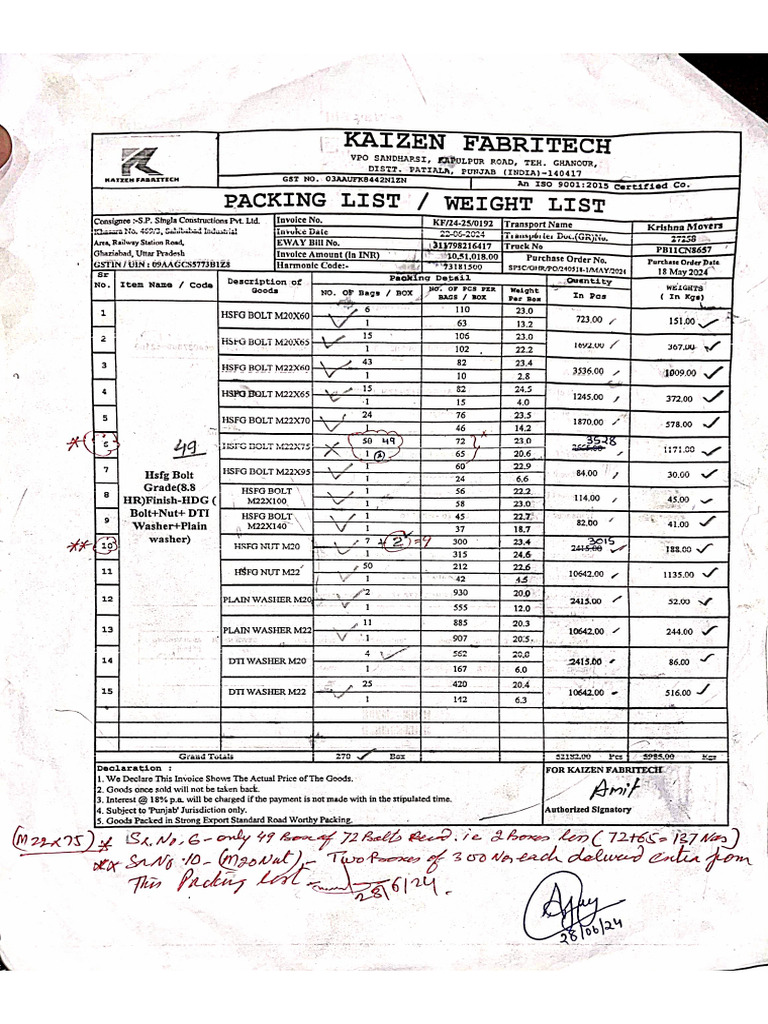 KAIZEN FABRITECH
VPO SANDHARSI, KAPULPUR ROAD, TEH. GHANOUR,
DISTT. PATIALA, PUNJAB (INDIA)-140417
KAIZEN FABRITECH
GST NO. 03AAUFK8442N1ZN An ISO 9001:2015 Certified Co.
PACKING LIST / WEIGHT LIST
Consignee :-S.P. Singla Constructions Pvt. Ltd. Invoice No. KF/24-25/0192 Transport Name Krishna Movers
Khasara No. 469/3, Sahibabad Industrial Invoice Date 22-06-2024 Transporter Doc.(GR)No. 27258
Area, Railway Station Road, EWAY Bill No. 311798216417 Truck No PB11CN8657
Ghaziabad, Uttar Pradesh Invoice Amount (In INR) 10,51,018.00 Purchase Order No. Purchase Order Date
GSTIN / UIN : 09AAGCS5773B1Z8 Harmonic Code:- 73181500 SPSC/GHR/PO/240518-1/MAY/2024 18 May 2024
Sr No. Item Name / Code Description of Goods Packing Detail Quantity WEIGHTS
NO. OF Bags / BOX NO. OF PCS PER BAGS / BOX Weight Per Box In Pcs ( In Kgs)
1 HSFG BOLT M20X60 6 110 23.0 723.00 151.00
1 63 13.2
2 HSFG BOLT M20X65 15 106 23.0 1692.00 367.00
1 102 22.2
3 HSFG BOLT M22X60 43 82 23.4 3536.00 1009.00
1 10 2.8
4 HSFG BOLT M22X65 15 82 24.5 1245.00 372.00
1 15 4.0
5 HSFG BOLT M22X70 24 76 23.5 1870.00 578.00
1 46 14.2
* 6 49 HSFG BOLT M22X75 50 49 72 23.0 3528 1171.00
1 65 20.6
Hsfg Bolt
Grade(8.8
HR)Finish-HDG (
Bolt+Nut+ DTI
Washer+Plain
washer)
7 HSFG BOLT M22X95 1 60 22.9 84.00 30.00
1 24 6.6
8 HSFG BOLT M22X100 1 56 22.2 114.00 45.00
1 58 23.0
9 HSFG BOLT M22X140 1 45 22.7 82.00 41.00
1 37 18.7
** 10 HSFG NUT M20 7 + 2 = 9 300 23.4 3015 2415.00 188.00
1 315 24.6
11 HSFG NUT M22 50 212 22.6 10642.00 1135.00
1 42 4.5
12 PLAIN WASHER M20 2 930 20.0 2415.00 52.00
1 555 12.0
13 PLAIN WASHER M22 11 885 20.3 10642.00 244.00
1 907 20.5
14 DTI WASHER M20 4 562 20.0 2415.00 86.00
1 167 6.0
15 DTI WASHER M22 25 420 20.4 10642.00 516.00
1 142 6.3
Grand Totals 270 Box 52182.00 Pcs 5985.00 Kgs
Declaration : FOR KAIZEN FABRITECH
1. We Declare This Invoice Shows The Actual Price of The Goods.
2. Goods once sold will not be taken back.
Amit
3. Interest @ 18% p.a. will be charged if the payment is not made with in the stipulated time.
4. Subject to 'Punjab' Jurisdiction only. Authorized Signatory
5. Goods Packed in Strong Export Standard Road Worthy Packing.
(M22x75) * Sr.No. 6 - only 49 Box of 72 Bolts Recd. i.e 2 Boxes less (72+65=137 Nos)
** Sr No. 10 - (M20 Nut) - Two Boxes of 300 Nos each delivered extra from
This Packing list
28/6/24.
Ajay
28/06/24